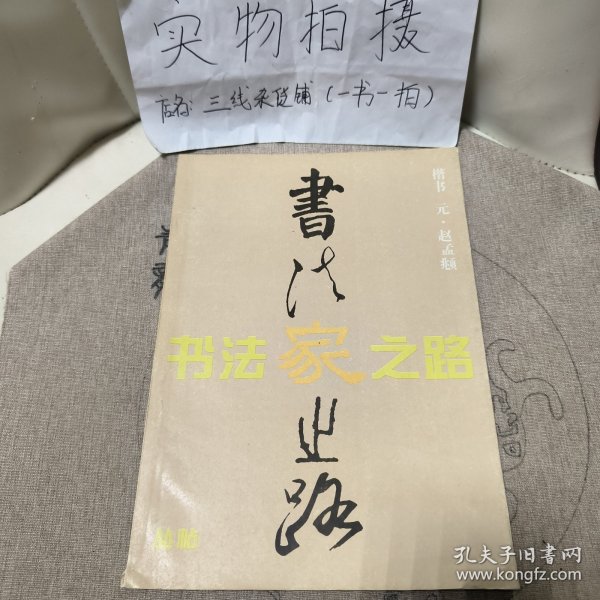 实物拍摄
店名: 三线杂货铺(一书一拍)
楷书 元·赵孟頫
書法家之路
书法家之路
孔夫子旧书网
www.kongfz.com